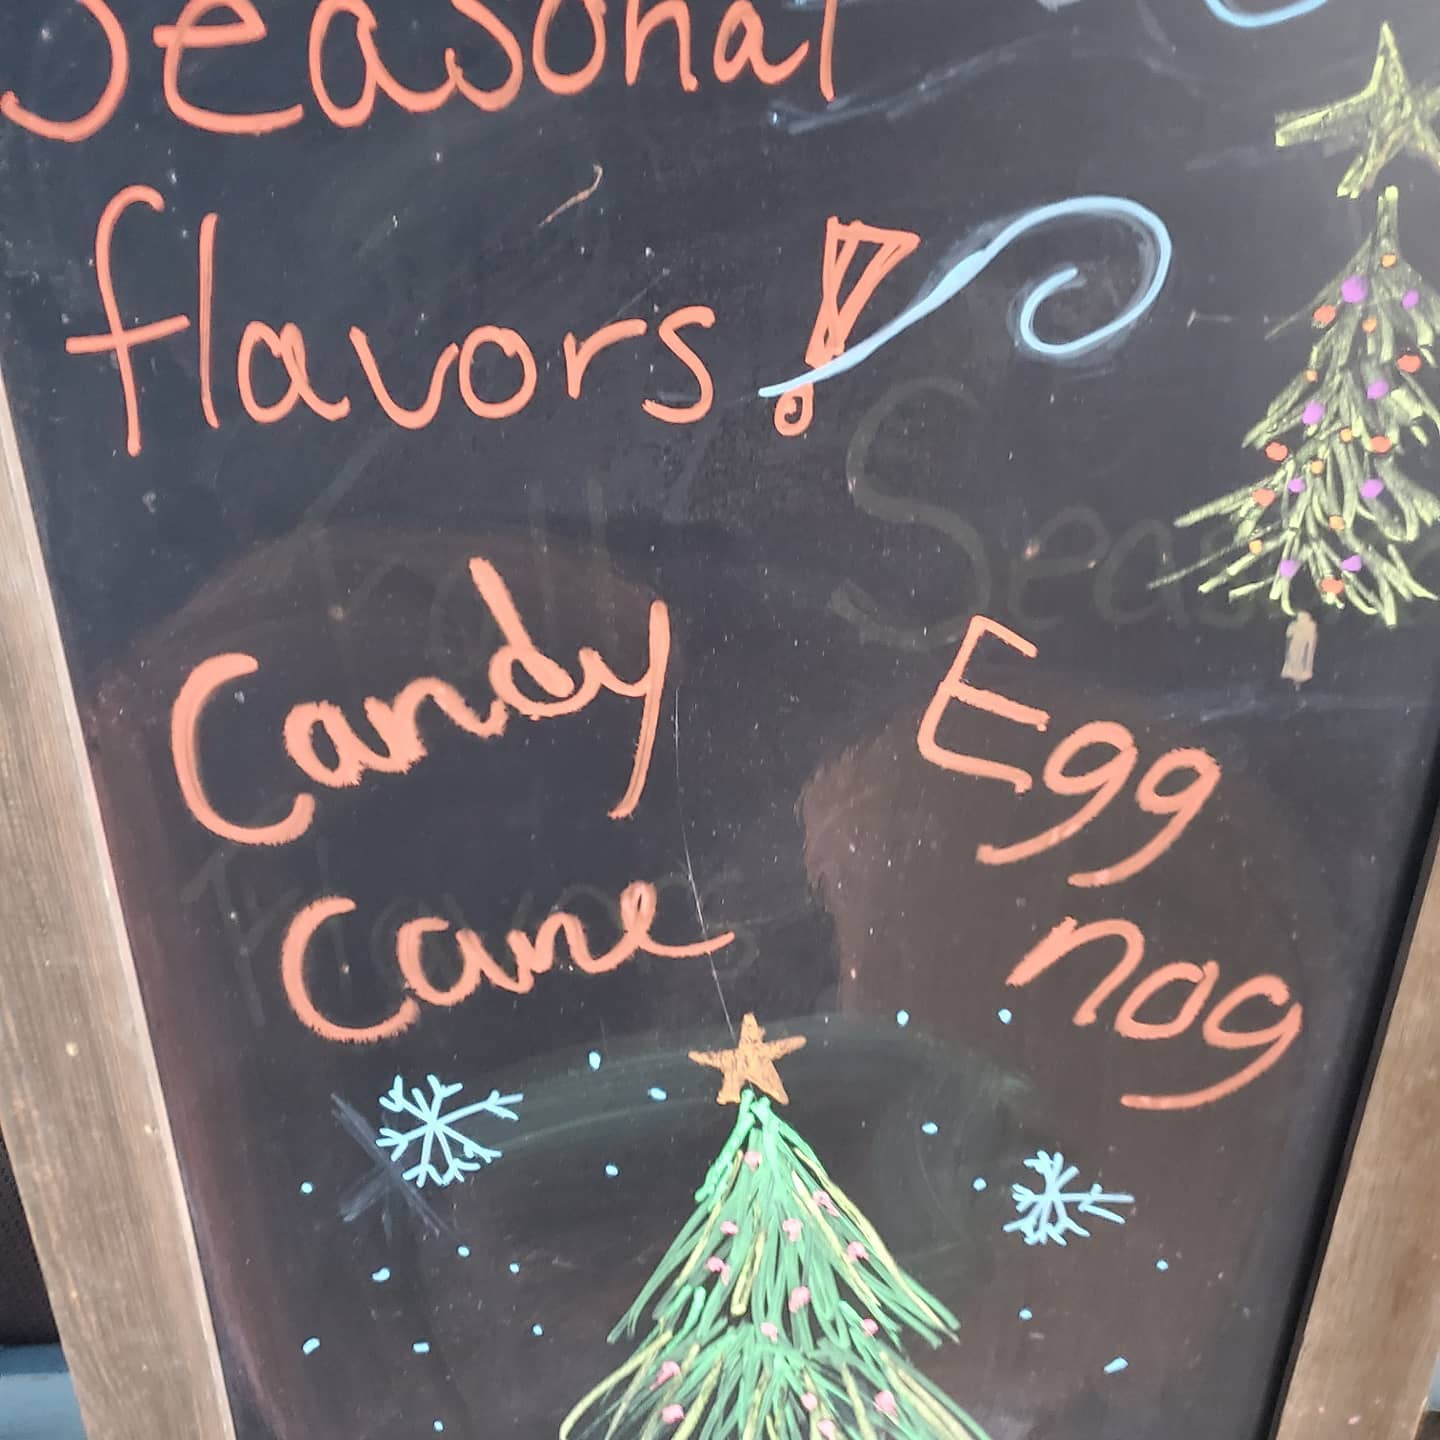 Seasonal
flavors!
Candy
Cane
Egg
nog